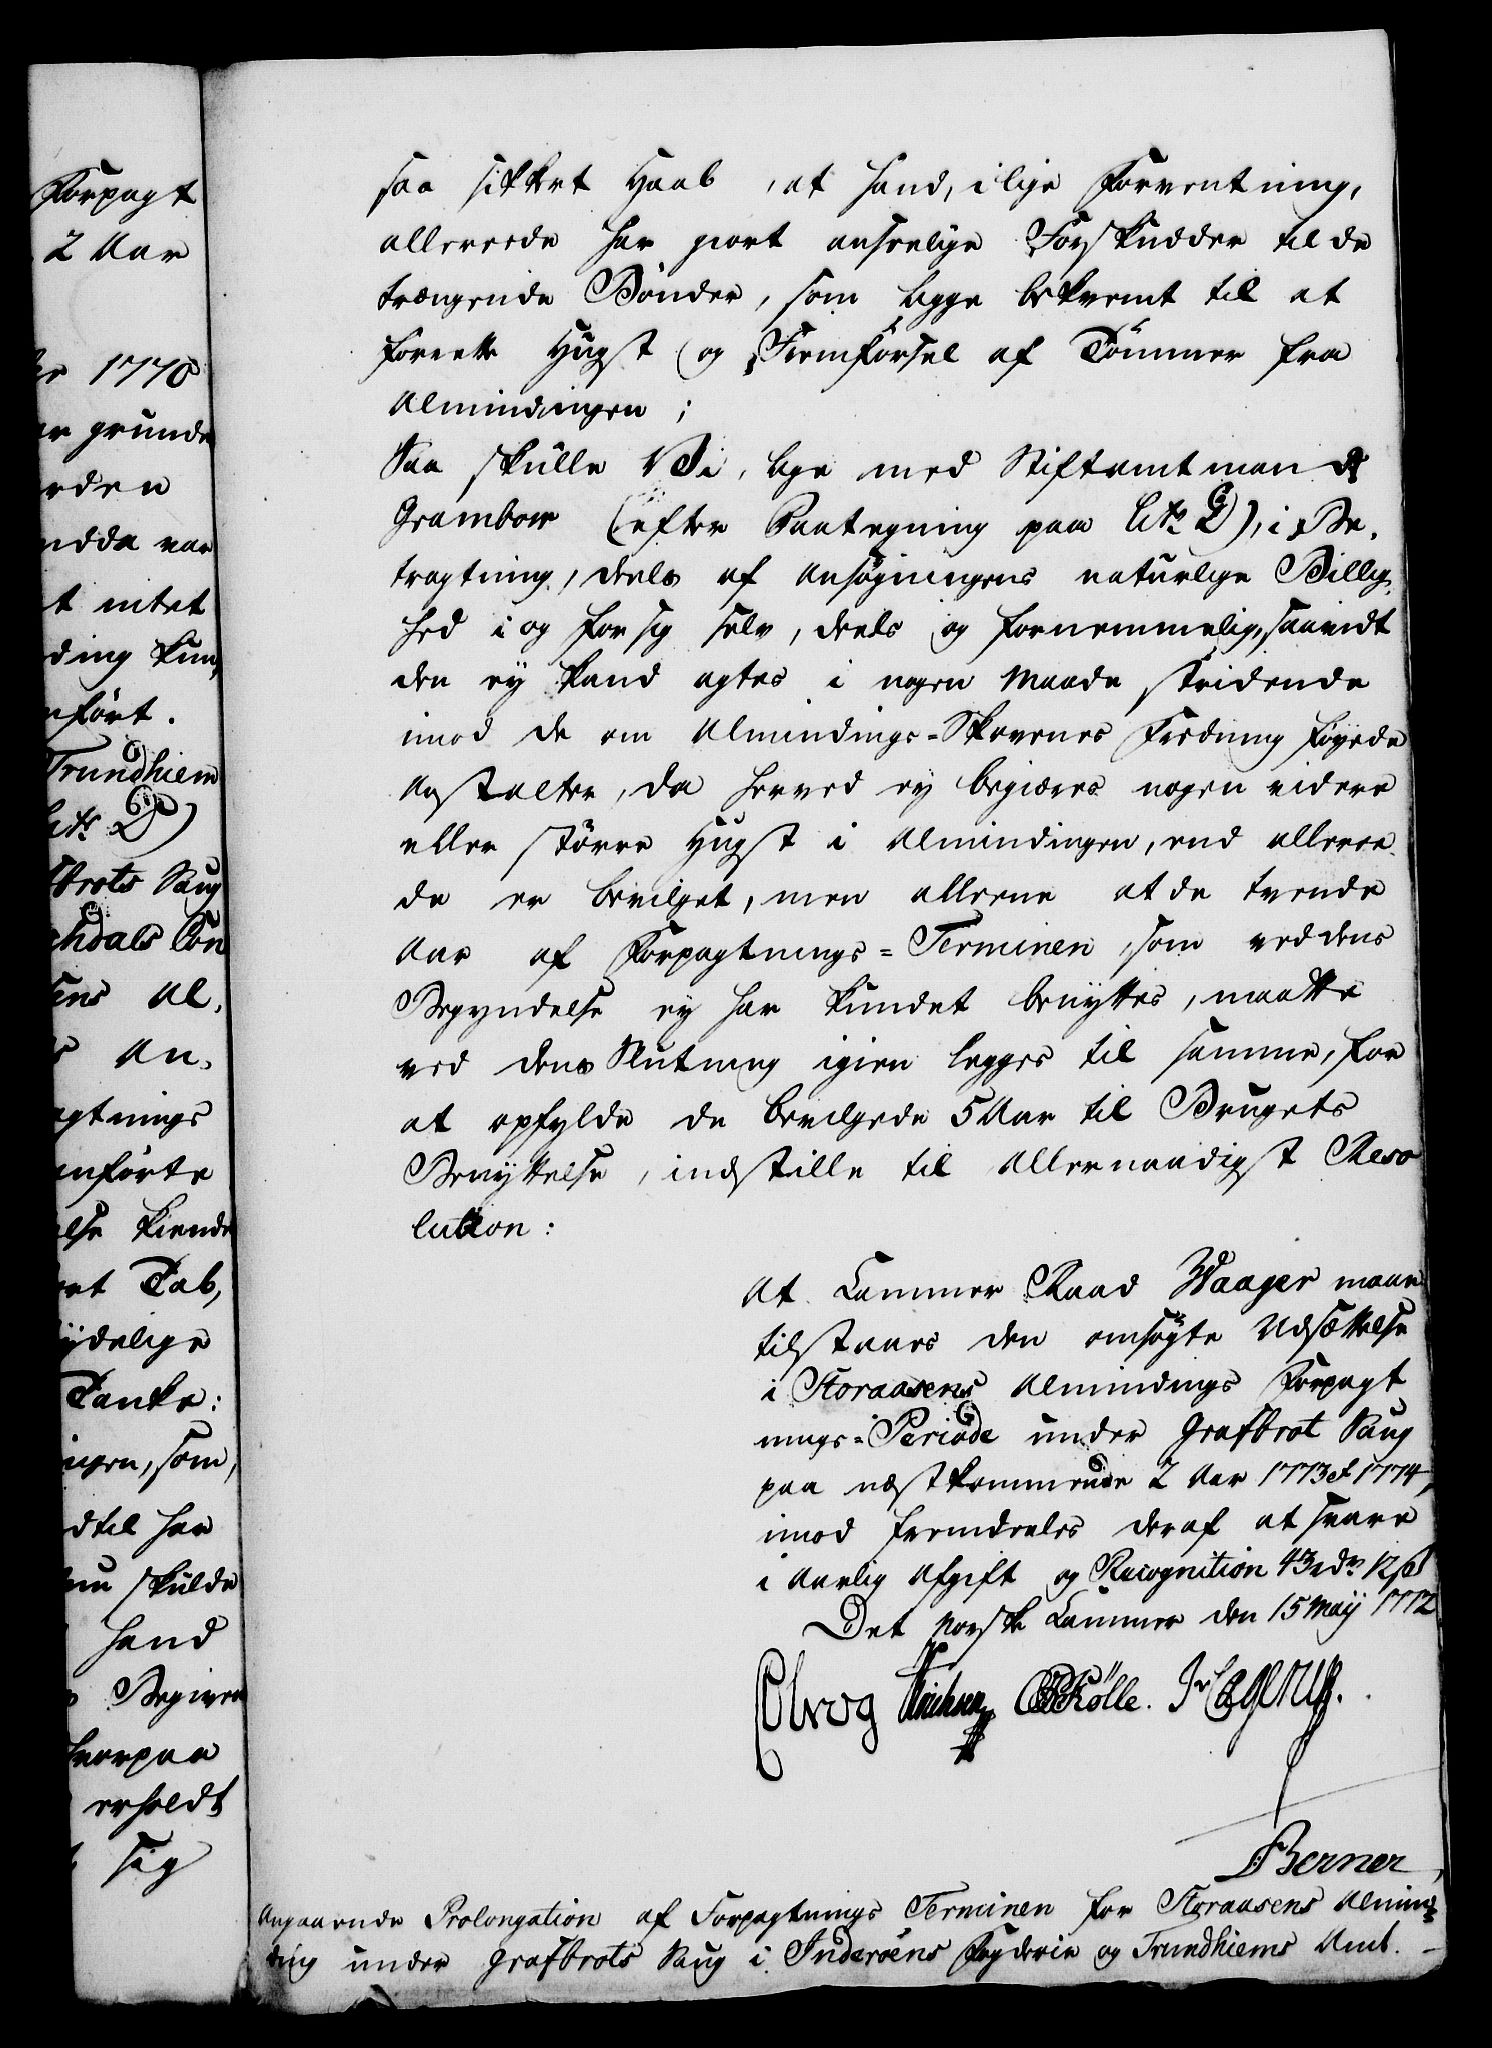 Forpagt
2 Aar
1770
grunde
rden
ndda var
t intet
ding kun,
nført.
Trundhiem
Litr D)
brots Saug
hdals Con
ens Al,
An,
agtnings
nførte
else kiende
et Tab,
ydelige
Tanke:
ingen, som,
dtil har
skulde
hand
Begieren
hvorpaa
erholdt
sig
saa sikkert Haab, at hand, i lige Forventning,
allereede har giort anseelige Forskudder til de
trængende Bønder, som ligge beqvemt til at
forrette Hugst og Fremførsel af Tømmer fra
Almindingen;
Saa skulle Vi, lige med Stiftamtmand
Grambow (efter Paategning paa Litr D), i Be,
tragtning, deels af Ansøgningens naturlige Billig,
hed i og for sig selv, deels og fornemmelig, saavidt
den ey kand agtes i nogen Maade stridende
imod de om Almindings-Skovenes Fredning føyede
Anstalter, da herved ey begiæres nogen videre
eller større Hugst i Almindingen, end alleree,
de er bevilget, men alleene at de tvende
Aar af Forpagtnings=Terminen, som ved dens
Begyndelse ey har kundet benyttes, maatte
ved dens Slutning igien legges til samme, for
at opfylde de bevilgede 5 Aar til Brugets
Benyttelse, indstille til Allernaadigst Reso
lution:
At Cammer Raad Waager maae
tilstaaes den ansøgte Udsættelse
i Storaasens Almindings Forpagt
nings=Periode under Grafbrot Saug
paa næstkommende 2 Aar 1773 et 1774,
imod fremdeeles deraf at svare
i Aarlig Afgift og Recognition 43 rdr 12 s
Det Norske Cammer den 15 Maij 1772
Kølle.
Berner
Angaaende Prolongation af Forpagtnings Terminen for Storaasens Almin=
ding under Grafbrots Saug i Inderøens Fogderie og Trundhiems Amt. -